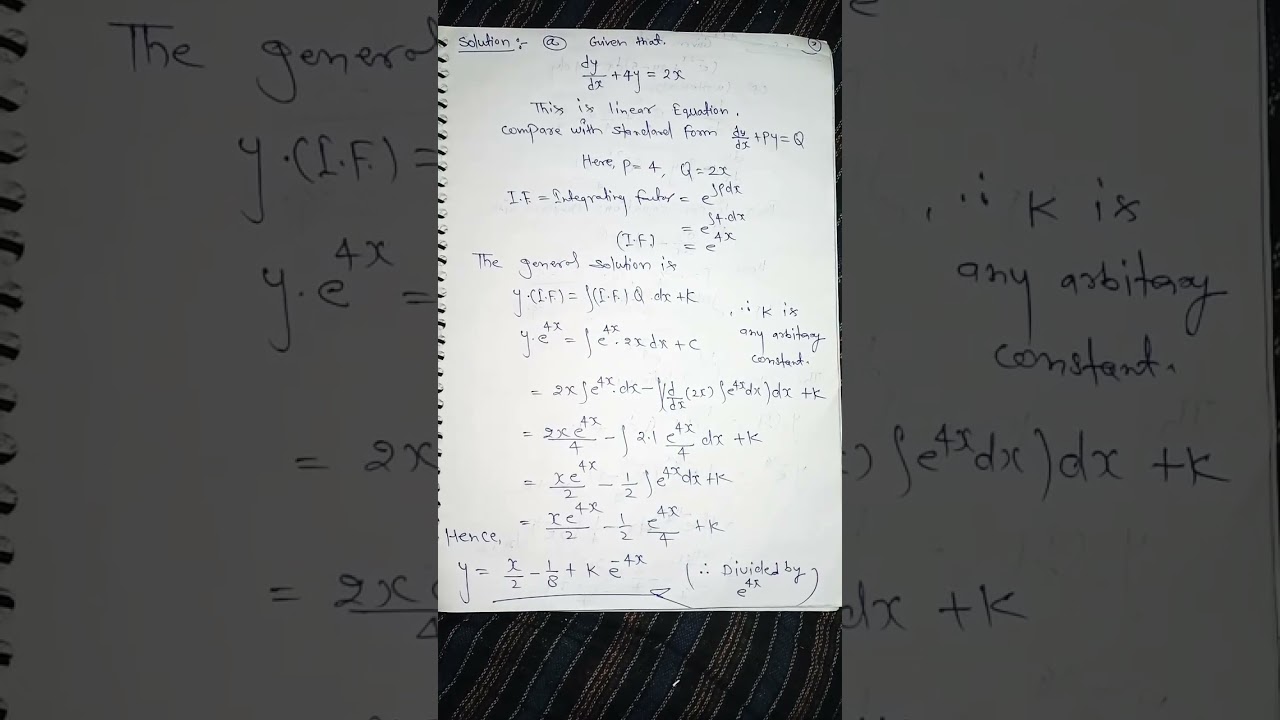 Solution:- (a) Given that.
dy/dx + 4y = 2x
This is linear Equation.
compare with standard form dy/dx + Py = Q
Here, P = 4, Q = 2x
I.F. = Integrating factor = e^∫Pdx
= e^∫4.dx
(I.F.) = e^4x
The general solution is
y.(I.F.) = ∫(I.F.) Q. dx + K
∵ K is any arbitary constant.
y.e^4x = ∫e^4x. 2x dx + C
= 2x ∫e^4x.dx - ∫(d/dx (2x) ∫e^4x dx) dx + K
= 2xe^4x/4 - ∫ 2.1 e^4x/4 dx + K
= xe^4x/2 - 1/2 ∫e^4x dx + K
= xe^4x/2 - 1/2 e^4x/4 + K
Hence,
y = x/2 - 1/8 + K e^-4x (∴ Divided by e^4x)
The general
y.(I.F.) =
y.e^4x =
= 2x
= 2x
∵ K is
any arbitary
constant.
) ∫e^4x dx) dx + K
dx + K